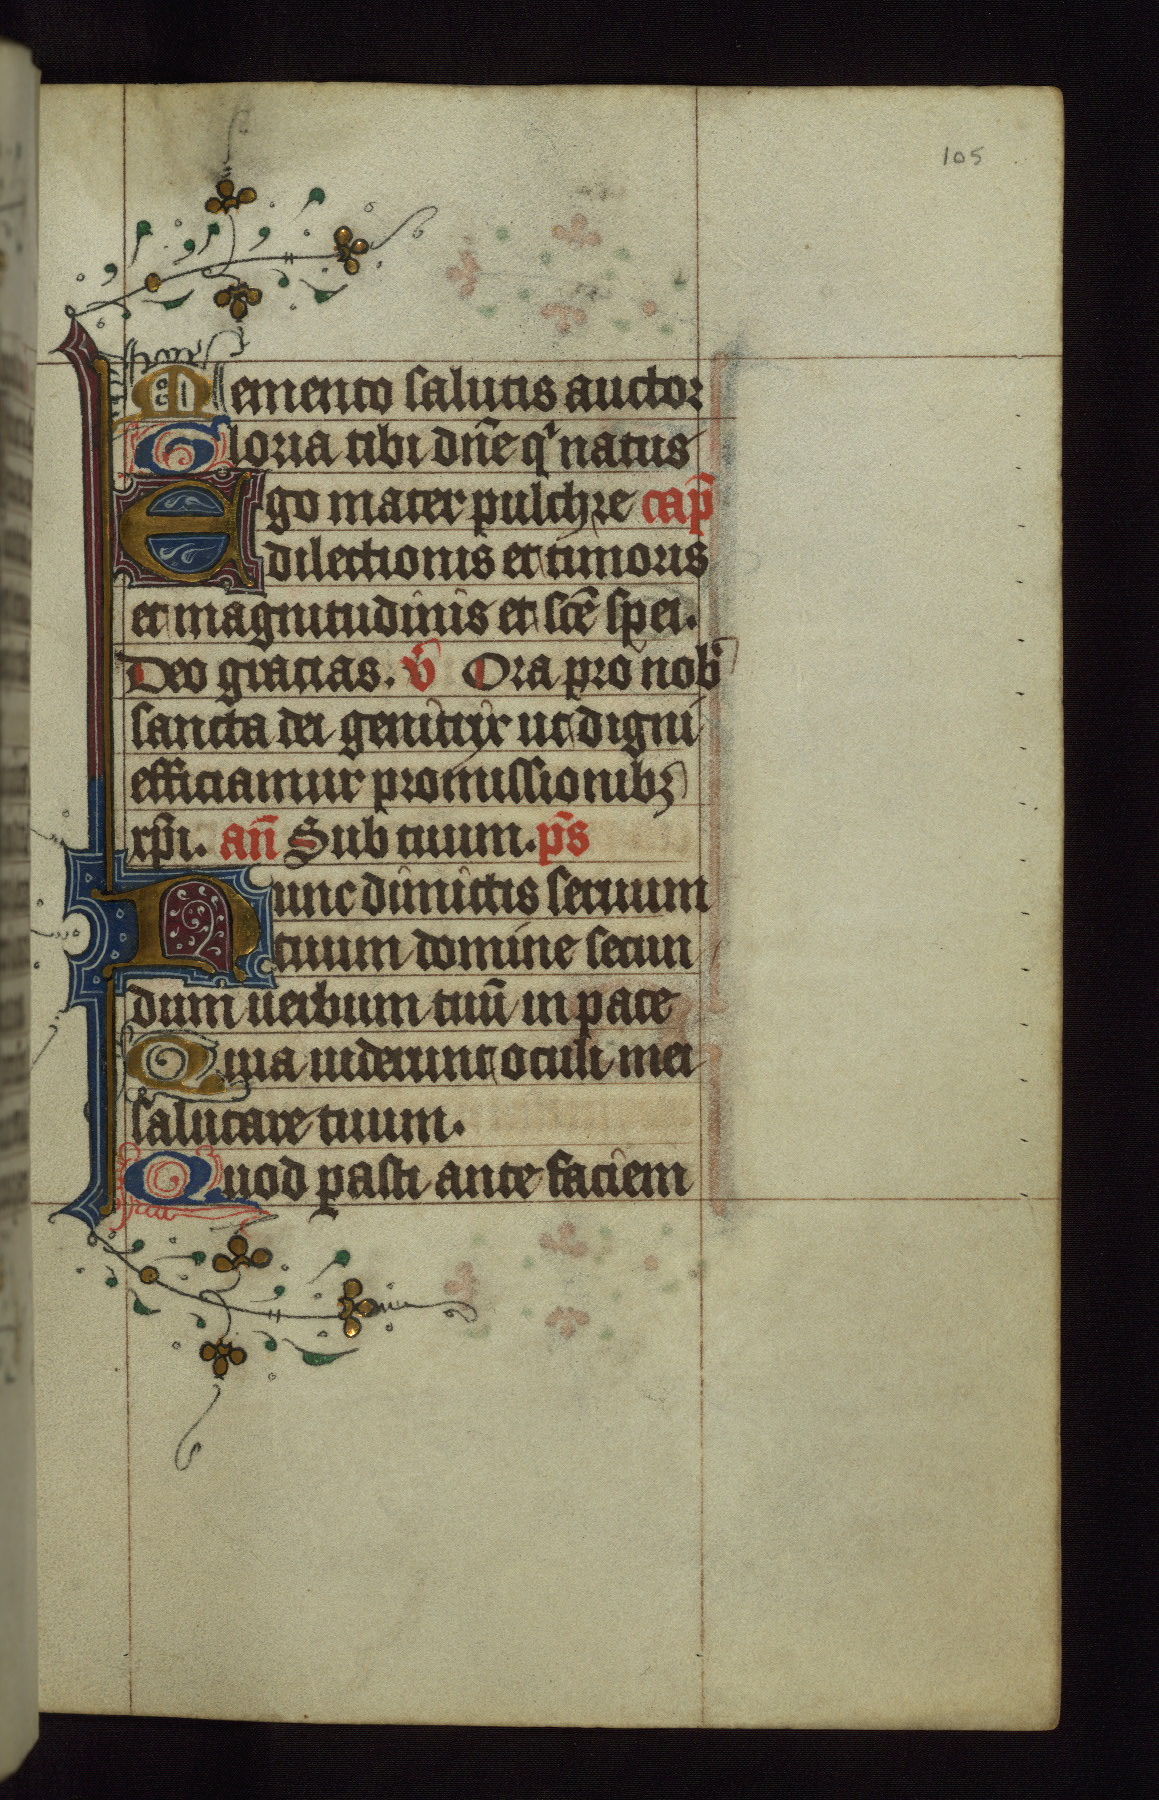 105
Memento salutis auctor
Gloria tibi dñe qi natus
Ego mater pulchre cap̃
dilectionis et timoris
et magnitudinis et scẽ spei.
Deo gracias. v̄ Ora pro nob̄
sancta dei genitrix ut digni
efficiamur promissionibꝫ
xp̄i. an̄ Sub tuum. p̄s
Nunc dimittis seruum
tuum domine secun
dum uerbum tuū in pace
Quia uiderunt oculi mei
salutare tuum.
Quod pasti ante faciem